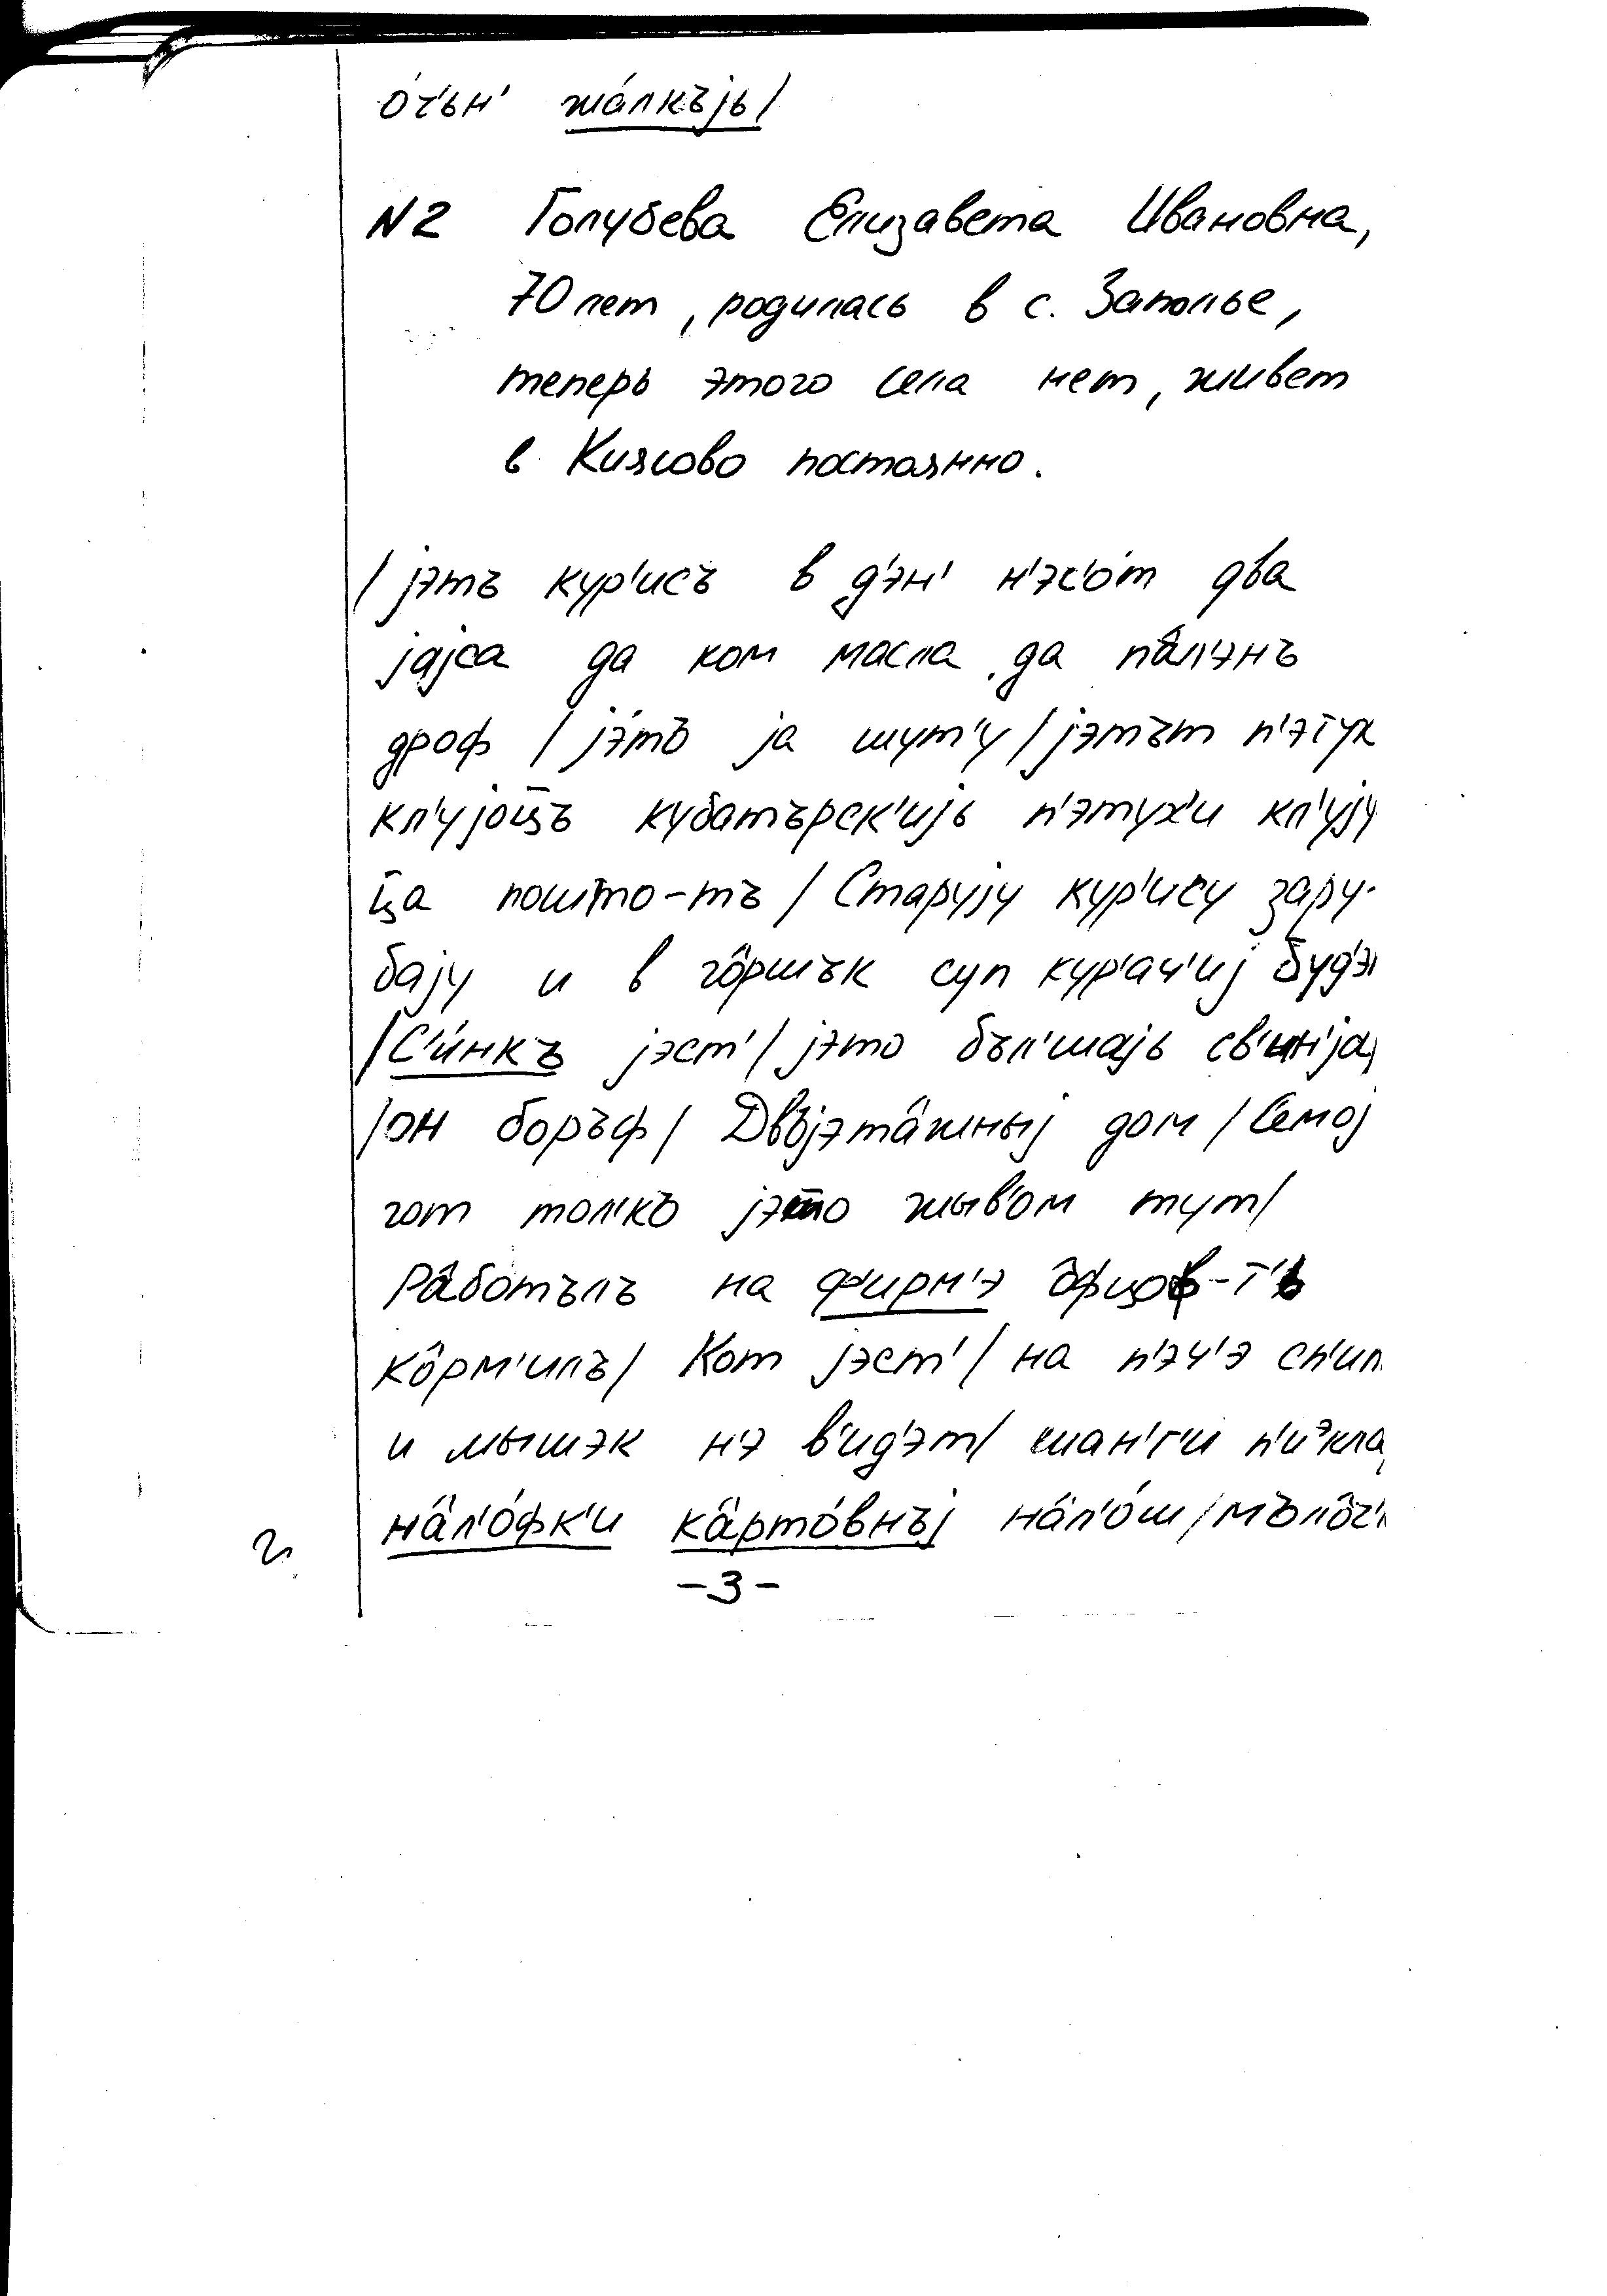 о́ч'ьн' жа́лкъjь/
N2 Голубева Елизавета Ивановна,
70 лет, родилась в с. Заполье,
теперь этого села нет, живет
в Киясово постоянно.
/jэтъ кур'исъ в д'эн' н'эс'о́т два
jajса да ком масла да па̂л'энъ
дроф / jэ́тъ ja шут'у / jэтът п'этух
кл'уjо̄цъ кубатърск'иjь п'этух'и кл'уjу
ц̄а пошто-тъ / Старуjу кур'ису зару-
баjу и в го̂ршък суп кур'ач'иj буд'э
/С'и́нкъ jэст' / jэто бъл'шаjь св'ин'jа
/он боръф / Двъjэта̂жныj дом / Семоj
гот тол'къ jэто жыв'ом тут/
Ра̂ботълъ на ф'ирм'э о̂фцов-т'ь
ко̂рм'илъ/ Кот jэст' / на п'эч'э сп'ит
и мышэк н'э в'ид'эт/ шан'г'и п'иᵊкла
на̂л'о́фк'и ка̂рто́внъj на̂л'о́ш /
-3-